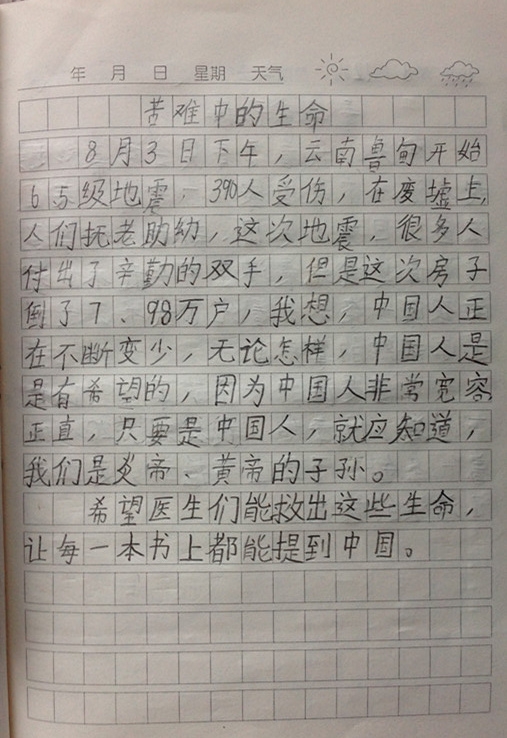 年 月 日 星期 天气
苦难中的生命
8月3日下午，云南鲁甸开始
6.5级地震，390人受伤，在废墟上，
人们抚老助幼，这次地震，很多人
付出了辛勤的双手，但是这次房子
倒了7、98万户，我想，中国人正
在不断变少，无论怎样，中国人是
是有希望的，因为中国人非常宽容
正直，只要是中国人，就应知道，
我们是炎帝、黄帝的子孙。
希望医生们能救出这些生命，
让每一本书上都能提到中国。